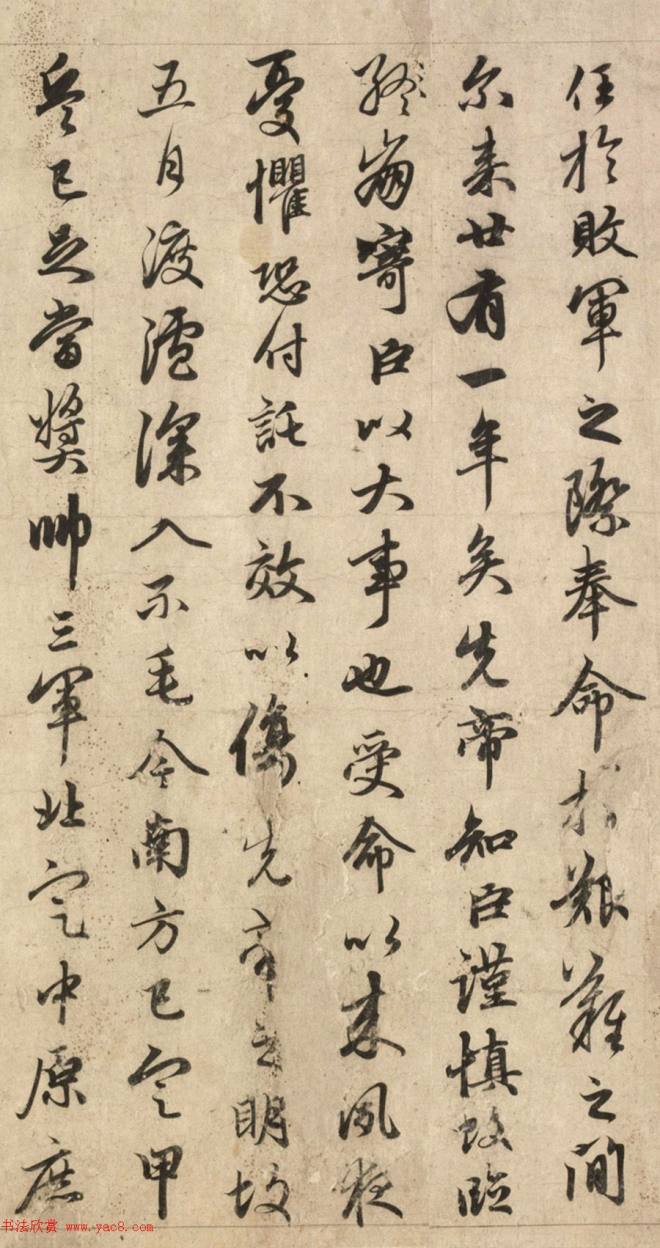 任於敗軍之際奉命於艱難之間
尒来廿有一年矣先帝知臣謹慎故臨
終崩寄臣以大事也受命以来夙夜
憂懼恐付託不效以傷先帝之明故
五月渡瀘深入不毛今南方已定甲
兵已足當獎帥三軍北定中原庶
书法欣赏 www.yac8.com